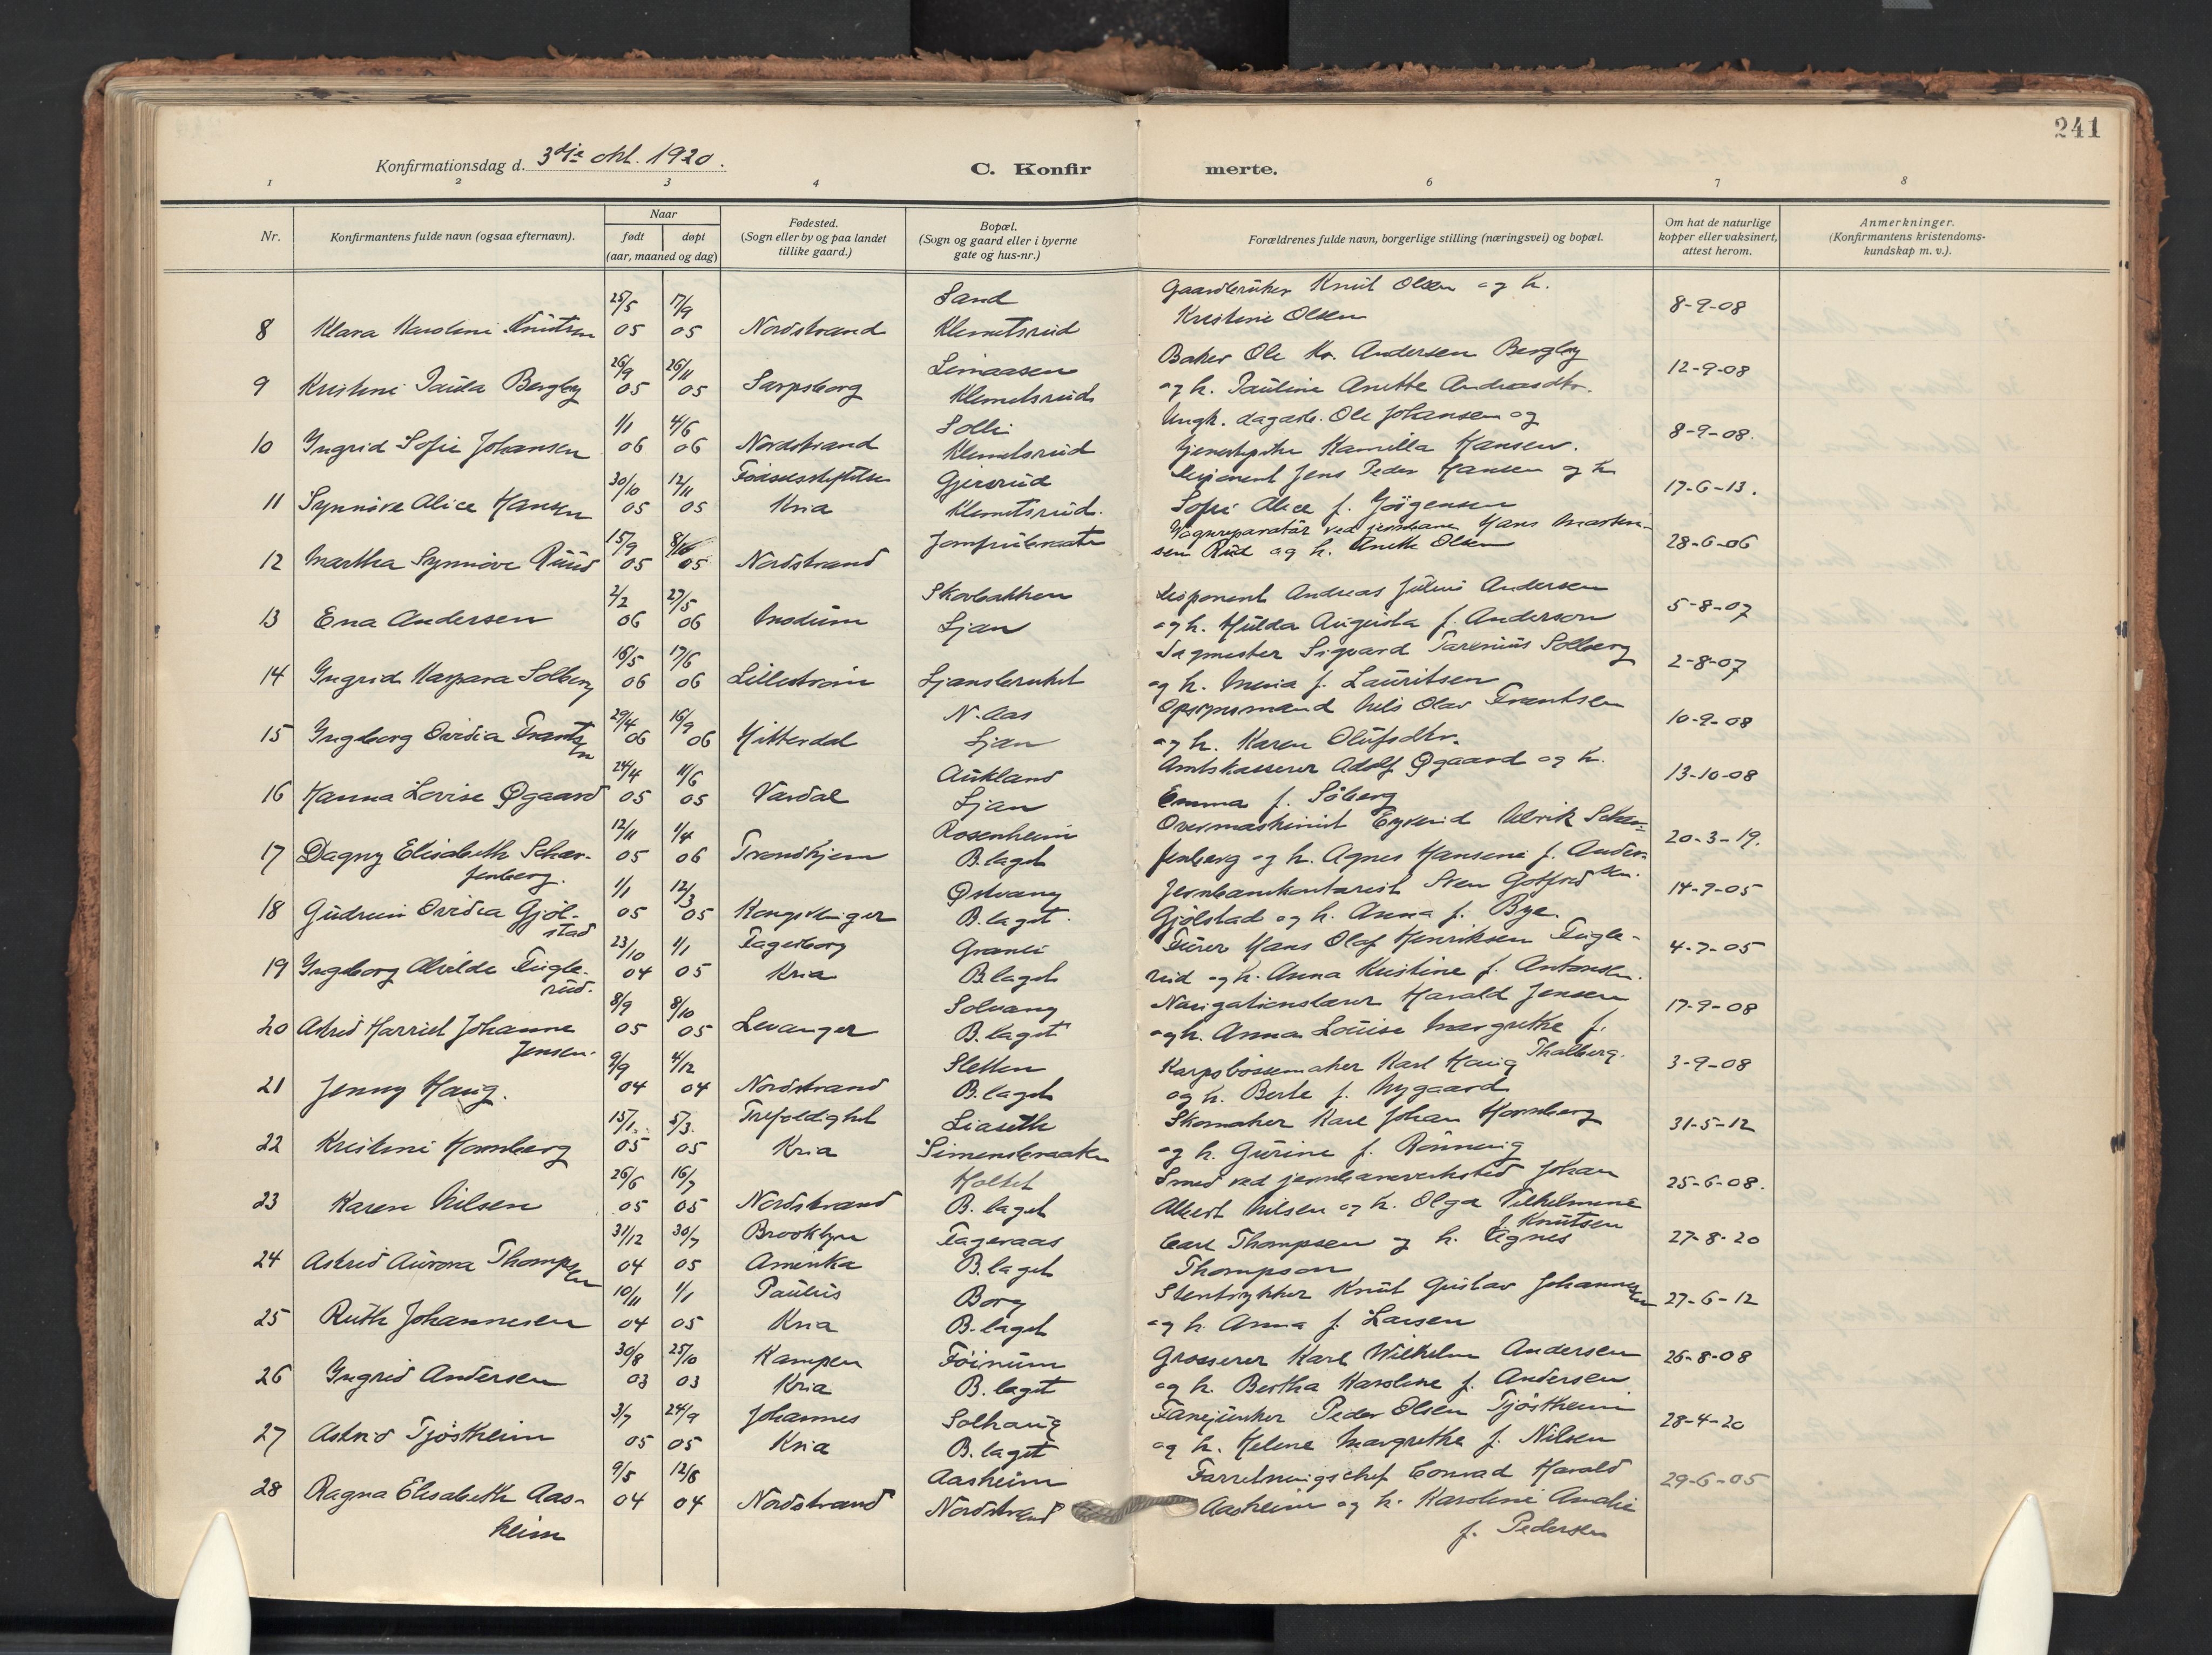 241
Konfirmationsdag d. 3dje okt. 1920.
C. Konfirmerte.
1 2 3 4 6 7 8
Nr.
Konfirmantens fulde navn (ogsaa efternavn).
Naar
født døpt
(aar, maaned og dag)
Fødested.
(Sogn eller by og paa landet
tillike gaard.)
Bopæl.
(Sogn og gaard eller i byerne
gate og hus-nr.)
Forældrenes fulde navn, borgerlige stilling (næringsvei) og bopæl.
Om hat de naturlige
kopper eller vaksinert,
attest herom.
Anmerkninger.
(Konfirmantens kristendoms-
kundskap m. v.).
25/5 17/9 Sand Gaardbruker Knut Olsen og h. 8-9-08
8 Klara Karoline Knutsen 05 05 Nordstrand Klemetsrud Kristine Olsen
26/9 26/11 Limaasen Baker Ole Kr. Andersen Bergby 12-9-08
9 Kristine Paula Bergby 05 05 Sarpsborg Klemetsrud og h. Pauline Anette Andreasdtr.
1/1 4/6 Solli Ungk. dagarb. Ole Johansen og 8-9-08.
10 Ingrid Sofie Johansen 06 06 Nordstrand Klemetsrud Tjenestepike Kamilla Hansen.
30/10 12/11 Fødselsstiftelsen Gjersrud Disponent Jens Peder Hansen og h. 17-6-13.
11 Synnøve Alice Hansen 05 05 Kria Klemetsrud. Sofie Alice f. Jörgensen
15/9 8/10 Jomfrubraaten Vognreparatör ved jernbane Hans Martin- 28-6-06
12 Martha Synnøve Ruud 05 05 Nordstrand sen Rud og h. Anette Olsen
2/2 27/5 Skovbakken Disponent Andreas Julius Andersen 5-8-07
13 Ena Andersen 06 06 Modum Ljan og h. Hulda Augusta f. Anderson
16/5 17/6 Sagmester Sigvard Farenius Solberg 2-8-07
14 Ingrid Kaspara Solberg 06 06 Lilleström Ljansbruket og h. Maria f. Lauritsen
29/4 16/9 N. Aas Opsynsmand Nils Olav Frantsen 10-9-08
15 Ingeborg Ovidia Frantsen 06 06 Hitterdal Ljan og h. Karen Olufsdtr.
24/4 11/6 Aukland Amtskasserer Adolf Øgaard og h. 13-10-08
16 Hanna Lovise Øgaard 05 05 Vardal Ljan Emma f. Söberg
12/11 1/4 Rosenheim Overmaskinist Eyvind Ulrik Schar- 20-3-19.
17 Dagny Elisabeth Schar- 05 06 Trondhjem B.laget fenberg og h. Agnes Hansine f. Ander-
fenberg. sen.
1/1 12/3 Østvang Jernbanekontorist Sven Gotfred 14-9-05
18 Gudrun Ovidia Gjöl- 05 05 Kongsvinger B.laget. Gjölstad og h. Anna f. Bye.
stad
23/10 1/1 Fagerborg Granli Furer Hans Olaf Henriksen Fugle- 4-7-05
19 Ingeborg Alvilde Fugle- 04 05 Kria B.laget rud og h. Anna Kristine f. Antonsen.
rud.
8/9 8/10 Solvang Navigationslærer Harald Jensen 17-9-08
20 Astrid Harriet Johanne 05 05 Levanger B.laget og h. Anna Louise Margrethe f.
Jensen. Thalberg.
9/9 4/12 Sletten Korpsbössemaker Karl Haug 3-9-08
21 Jenny Haug. 04 04 Nordstrand B.laget og h. Berte f. Nygaard
15/1 5/3 Trefoldighet Liaseth Skomaker Karl Johan Hornberg 31-5-12
22 Kristine Hornberg 05 05 Kria Simensbraaten og h. Gurine f. Rönning
26/6 16/7 Holtet Smed ved jernbaneverksted Johan 25-6-08.
23 Karen Nilsen 05 05 Nordstrand B.laget Albert Nilsen og h. Olga Vilhelmine
f. Knutsen
31/12 30/7 Brooklyn Fageraas Carl Thompsen og h. Agnes 27-8-20
24 Astrid Aurora Thompsen 04 05 Amerika B.laget Thompson
10/11 1/1 Paulus Borg Stentrykker Knut Gustav Johannesen 27-6-12
25 Ruth Johannesen 04 05 Kria B.laget og h. Anna f. Larsen
30/8 25/10 Kampen Föinum Grosserer Karl Wilhelm Andersen 26-8-08
26 Ingrid Andersen 03 03 Kria B.laget og h. Bertha Karoline f. Andersen
3/7 24/9 Johannes Solhaug Fanejunker Peder Olsen Tjöstheim 28-4-20
27 Astrid Tjöstheim 05 05 Kria B.laget og h. Helene Margrethe f. Nilsen
9/5 12/6 Aasheim Forretningschef Conrad Harald 29-6-05
28 Ragna Elisabeth Aas- 04 04 Nordstrand Nordstrand Aasheim og h. Karoline Amalie
heim f. Pedersen